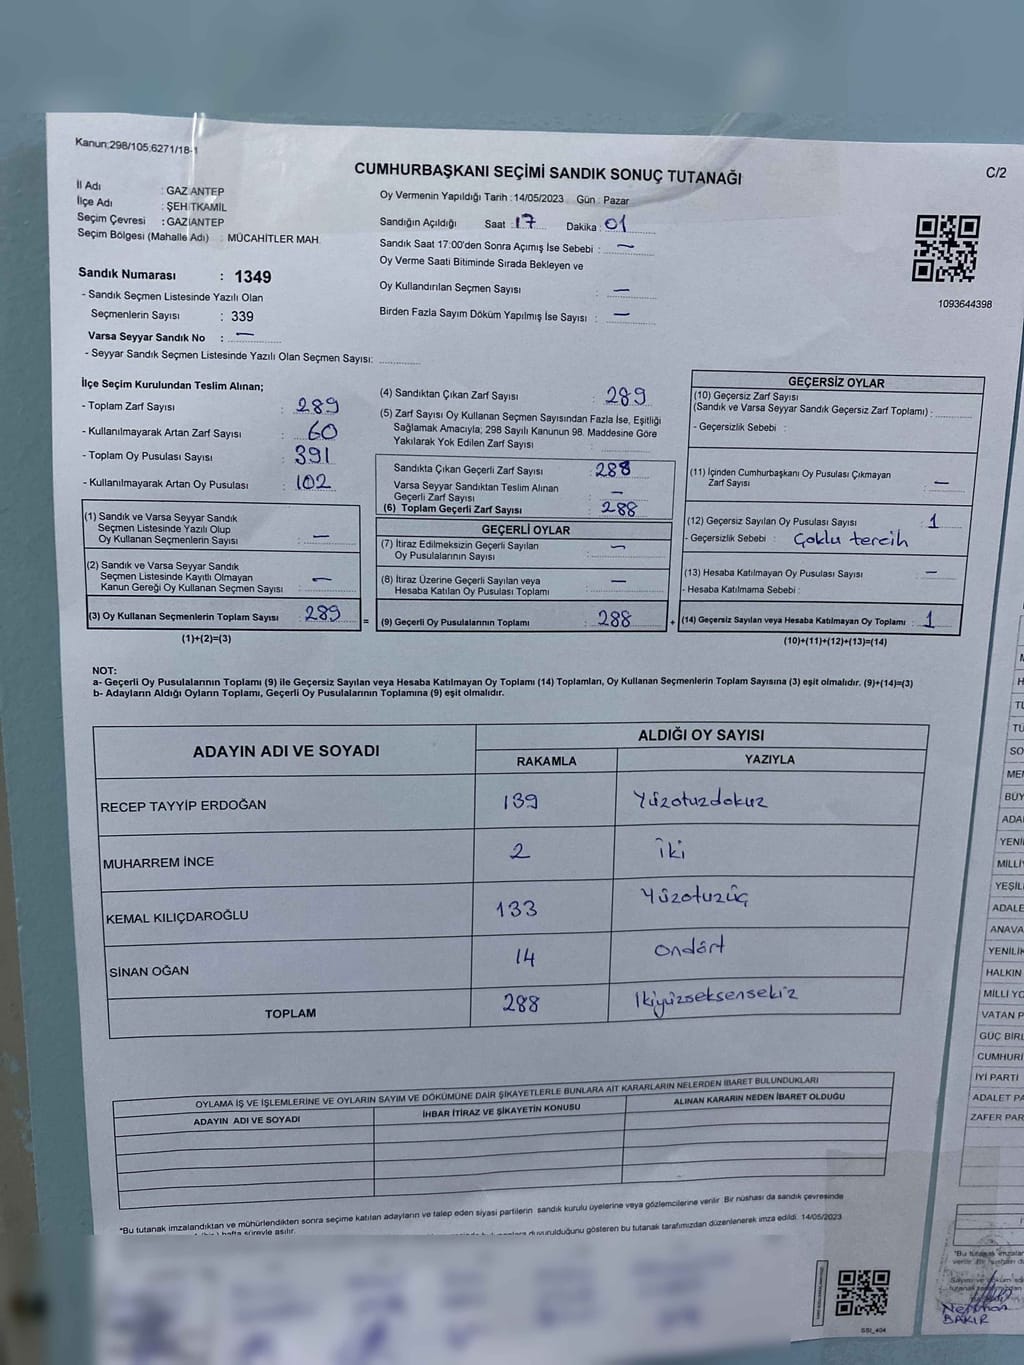 Kanun;298/105;6271/18-1
CUMHURBAŞKANI SEÇİMİ SANDIK SONUÇ TUTANAĞI
C/2
İl Adı : GAZİANTEP
İlçe Adı : ŞEHİTKAMİL
Seçim Çevresi : GAZİANTEP
Seçim Bölgesi (Mahalle Adı) : MÜCAHİTLER MAH.
Oy Vermenin Yapıldığı Tarih : 14/05/2023 Gün : Pazar
Sandığın Açıldığı Saat : 17 Dakika : 01
Sandık Saat 17:00'den Sonra Açımış İse Sebebi : —
Oy Verme Saati Bitiminde Sırada Bekleyen ve
Oy Kullandırılan Seçmen Sayısı : —
Birden Fazla Sayım Döküm Yapılmış İse Sayısı : —
1093644398
Sandık Numarası : 1349
- Sandık Seçmen Listesinde Yazılı Olan
Seçmenlerin Sayısı : 339
Varsa Seyyar Sandık No : —
- Seyyar Sandık Seçmen Listesinde Yazılı Olan Seçmen Sayısı:
İlçe Seçim Kurulundan Teslim Alınan;
- Toplam Zarf Sayısı : 289
- Kullanılmayarak Artan Zarf Sayısı : 60
- Toplam Oy Pusulası Sayısı : 391
- Kullanılmayarak Artan Oy Pusulası : 102
(1) Sandık ve Varsa Seyyar Sandık
Seçmen Listesinde Yazılı Olup
Oy Kullanan Seçmenlerin Sayısı : —
(2) Sandık ve Varsa Seyyar Sandık
Seçmen Listesinde Kayıtlı Olmayan
Kanun Gereği Oy Kullanan Seçmen Sayısı : —
(3) Oy Kullanan Seçmenlerin Toplam Sayısı : 289
(1)+(2)=(3)
(4) Sandıktan Çıkan Zarf Sayısı : 289
(5) Zarf Sayısı Oy Kullanan Seçmen Sayısından Fazla İse, Eşitliği
Sağlamak Amacıyla; 298 Sayılı Kanunun 98. Maddesine Göre
Yakılarak Yok Edilen Zarf Sayısı :
Sandıkta Çıkan Geçerli Zarf Sayısı : 288
Varsa Seyyar Sandıktan Teslim Alınan
Geçerli Zarf Sayısı : —
(6) Toplam Geçerli Zarf Sayısı : 288
GEÇERLİ OYLAR
(7) İtiraz Edilmeksizin Geçerli Sayılan
Oy Pusulalarının Sayısı : —
(8) İtiraz Üzerine Geçerli Sayılan veya
Hesaba Katılan Oy Pusulası Toplamı : —
= (9) Geçerli Oy Pusulalarının Toplamı : 288
GEÇERSİZ OYLAR
(10) Geçersiz Zarf Sayısı
(Sandık ve Varsa Seyyar Sandık Geçersiz Zarf Toplamı) :
- Geçersizlik Sebebi :
(11) İçinden Cumhurbaşkanı Oy Pusulası Çıkmayan
Zarf Sayısı : —
(12) Geçersiz Sayılan Oy Pusulası Sayısı : 1
- Geçersizlik Sebebi : Çoklu tercih
(13) Hesaba Katılmayan Oy Pusulası Sayısı : —
- Hesaba Katılmama Sebebi :
+ (14) Geçersiz Sayılan veya Hesaba Katılmayan Oy Toplamı : 1
(10)+(11)+(12)+(13)=(14)
NOT:
a- Geçerli Oy Pusulalarının Toplamı (9) ile Geçersiz Sayılan veya Hesaba Katılmayan Oy Toplamı (14) Toplamları, Oy Kullanan Seçmenlerin Toplam Sayısına (3) eşit olmalıdır. (9)+(14)=(3)
b- Adayların Aldığı Oyların Toplamı, Geçerli Oy Pusulalarının Toplamına (9) eşit olmalıdır.
ADAYIN ADI VE SOYADI ALDIĞI OY SAYISI
RAKAMLA YAZIYLA
RECEP TAYYİP ERDOĞAN 139 Yüzotuzdokuz
MUHARREM İNCE 2 İki
KEMAL KILIÇDAROĞLU 133 Yüzotuzüç
SİNAN OĞAN 14 Ondört
TOPLAM 288 İkiyüzseksensekiz
OYLAMA İŞ VE İŞLEMLERİNE VE OYLARIN SAYIM VE DÖKÜMÜNE DAİR ŞİKAYETLERLE BUNLARA AİT KARARLARIN NELERDEN İBARET BULUNDUKLARI
ADAYIN ADI VE SOYADI İHBAR İTİRAZ VE ŞİKAYETİN KONUSU ALINAN KARARIN NEDEN İBARET OLDUĞU
*Bu tutanak imzalandıktan ve mühürlendikten sonra seçime katılan adayların ve talep eden siyasi partilerin sandık kurulu üyelerine veya gözlemcilerine verilir. Bir nüshası da sandık çevresinde
hafta süreyle asılır.
duyurulduğunu gösteren bu tutanak tarafımızdan düzenlenerek imza edildi. 14/05/2023
SSİ_404
TÜ
TÜ
SO
MEM
BÜY
ADA
YENİ
MİLLİ
YEŞİL
ADALE
ANAVA
YENİLİK
HALKIN
MİLLİ YO
VATAN P
GÜÇ BİRL
CUMHURİ
İYİ PARTİ
ADALET PA
ZAFER PAR
*Bu tutanak imzalan
BAKIR